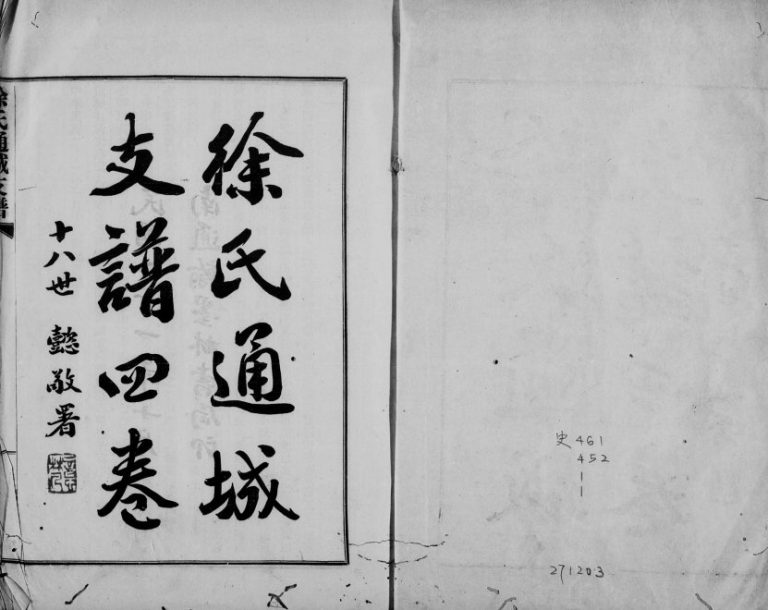 史461
452
1
1
271203
徐氏通城
支譜四卷
十八世 懿敬署
徐氏通城支譜